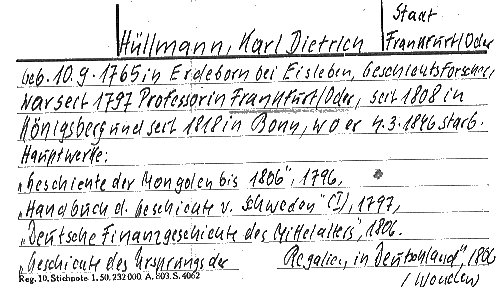 Staat
Hüllmann, Karl Dietrich Frankfurt/Oder
geb. 10.9.1765 in Erdeborn bei Eisleben, Geschichtsforscher,
war seit 1797 Professor in Frankfurt/Oder, seit 1808 in
Königsberg und seit 1818 in Bonn, wo er 4.3.1846 starb.
Hauptwerke:
„Geschichte der Mongolen bis 1806", 1796,
„Handbuch d. Geschichte v. Schweden" (I), 1797,
„Deutsche Finanzgeschichte des Mittelalters", 1806.
„Geschichte des Ursprungs der Regalien, in Deutschland", 1806
Reg. 10. Stichnote 1. 50. 232 000. A. 803. S. 4062
/ Wenden